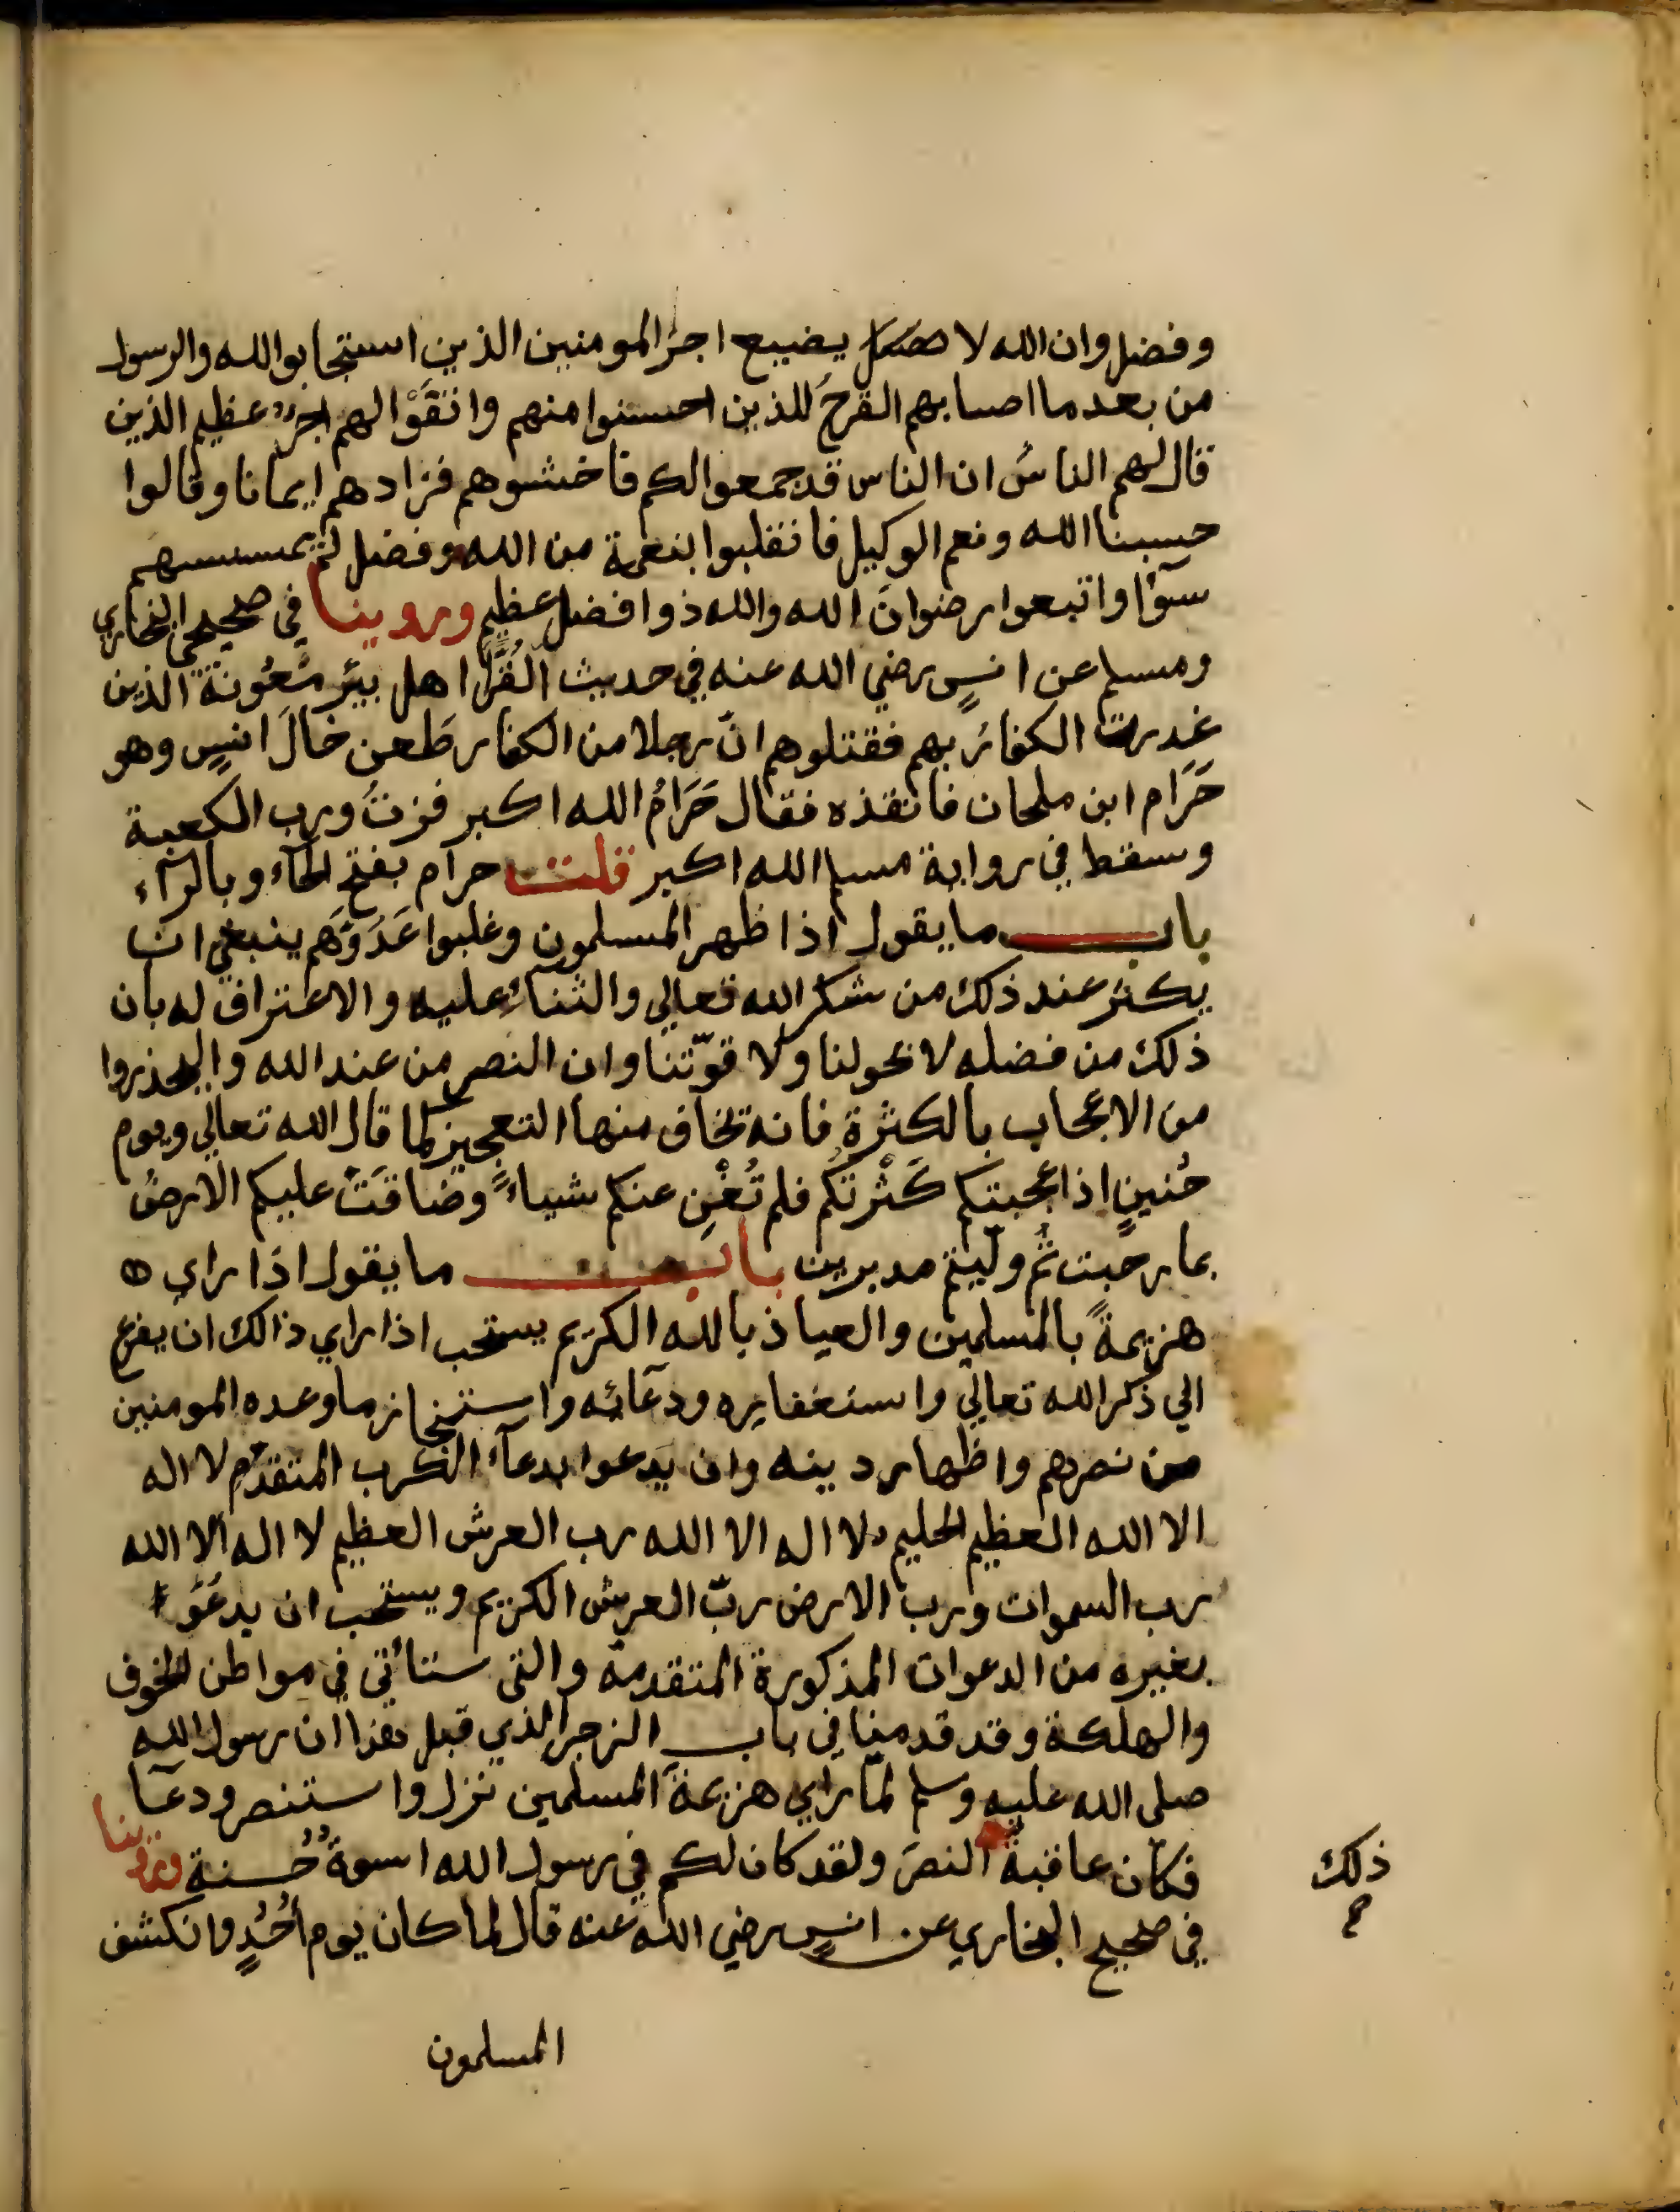 وفضل وان الله لا يضيع اجر المومنين الذين استجابوا لله والرسول
من بعد ما اصابهم القرحُ للذين احسنوا منهم واتقَوْا لهم اجرٌ عظيم الذين
قال لهم الناسُ ان الناس قد جمعوا لكم فاخشوهم فزادهم ايمانا وقالوا
حسبنا الله ونعم الوكيل فانقلبوا بنعمة من الله وفضل لم يمسسهم
سوٓءا واتبعوا رضوانَ الله والله ذوا فضل عظيم وروينا في صحيحي البخاري
ومسلم عن انسٍ رضي الله عنه في حديث القُرَّا اهل بيئر مَعُونة الذين
غدرت الكفارُ بهم فقتلوهم انّ رجلا من الكفار طَعن خالَ انسٍ وهو
حَرَام ابن ملحان فانقذه فقال حَرَامُ الله اكبر فزتُ ورب الكعبة
وسقط في رواية مسلم الله اكبر قلت حرام بفتح الحآء وبالرآء
باب ما يقول اذا ظهر المسلمون وغلبوا عَدُوّهَم ينبغي ان
يكثرَ عند ذلك من شكر الله تعالي والثنآءِ عليه والاعتراف له بان
ذلك من فضله لا بحولنا ولا قوّتنا وان النصر من عند الله واليحذروا
من الاعجاب بالكثرة فانه تخاف منها التعجيز كما قال الله تعالي ويوم
حُنينٍ اذا عجبتكم كَثْرتُكم فلم تُغْنِ عنكم شياءً وضاقَتْ عليكم الارضُ
بما رحبت ثُم ولّيتم مدبرين باب ما يقول اذا راي
هزيمةً بالمسلمين والعياذ بالله الكريم يستحب اذا راي ذالك ان يفزع
الي ذكر الله تعالي واستغفاره ودعآئه واستنجاز ما وعده المومنين
من نصرهم واظهار دينه وان يدعوا بدعآء الكرب المتقدّم لا اله
الا الله العظيم الحليم لا اله الا الله رب العرش العظيم لا اله الا الله
رب السموات ورب الارض ربّ العرش الكريم ويستحب ان يدعُوَ
بغيره من الدعوات المذكورة المتقدمة والتي ستأتي في مواطن الخوف
والهلكة وقد قدمنا في باب الزجر الذي قبل هذا ان رسول الله
صلى الله عليه وسلم لمّا راي هزيمةَ المسلمين نزل واستنصر ودعآ
فكان عاقبةُ النصرَ ولقد كان لكم في رسول الله اسوةٌ حُسنة وروينا
ذلك
في صحيح البخاري عن انسٍ رضي الله عنه قال لما كان يوم أُحُدٍ وانكشف
المسلمون